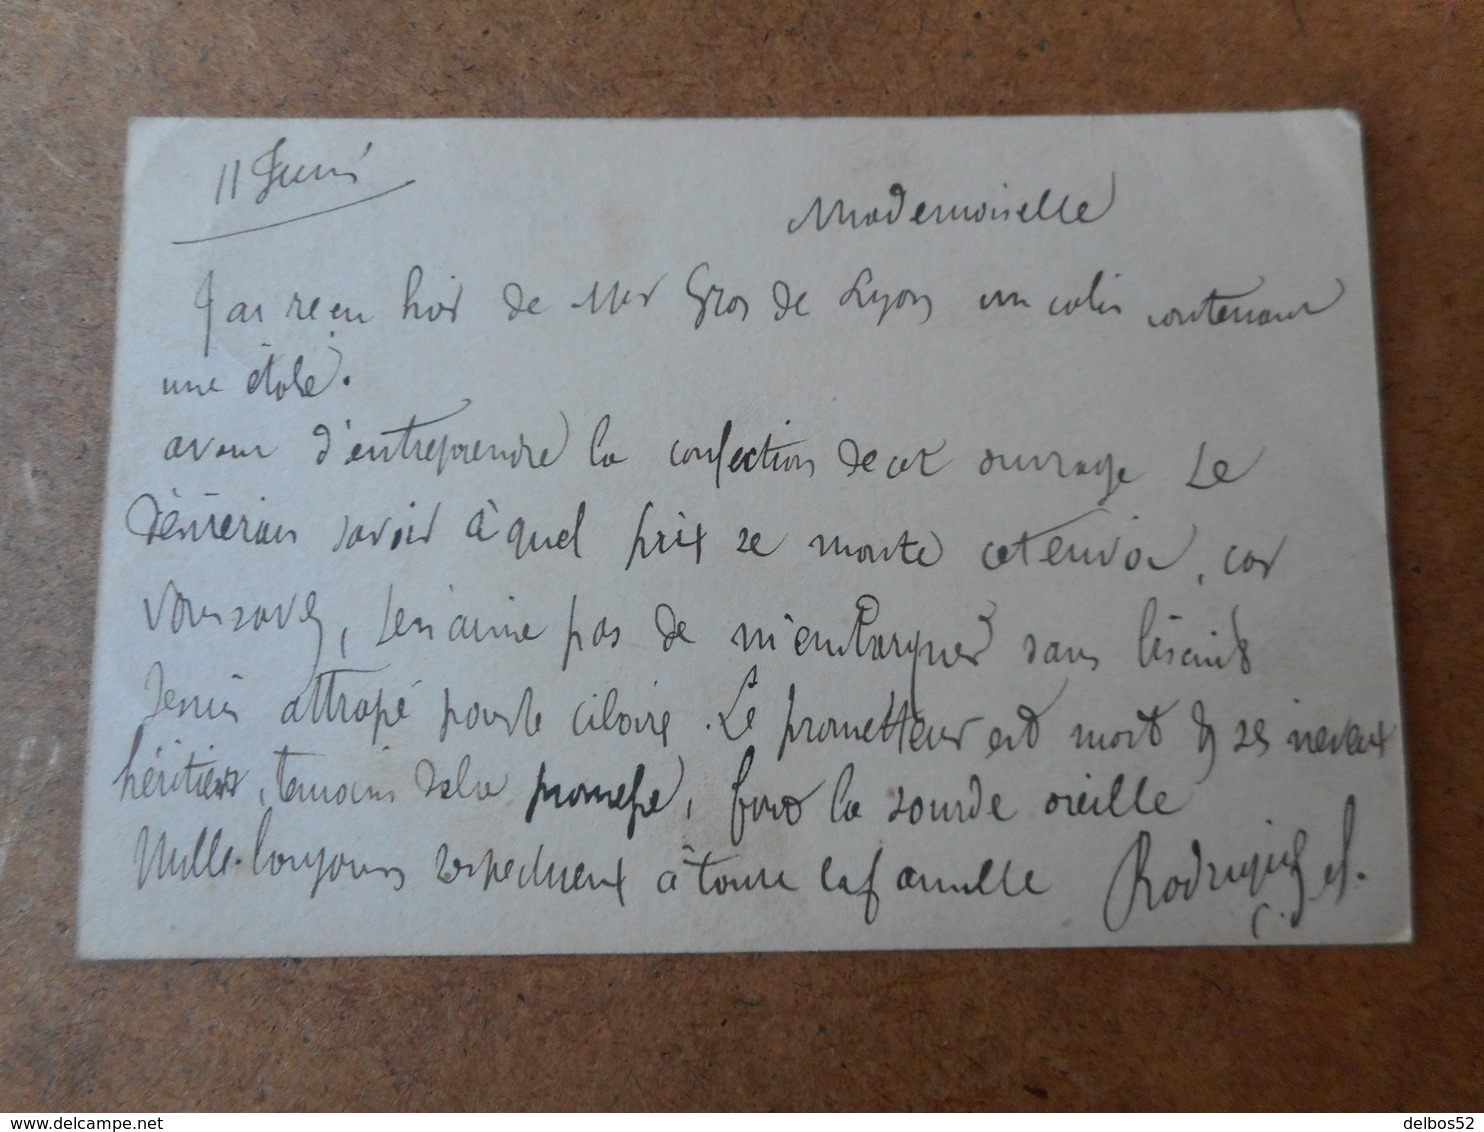 11 Juin
Mademoiselle
J'ai reçu hier de Mr Gros de Lyon un colis contenant
une étole.
avant d'entreprendre la confection de cet ouvrage Je
désirerais savoir à quel prix se monte cet envoi, car
vous savez, Je n'aime pas de m'embarquer sans biscuits
Je suis attrapé pour le ciboire. Le prometteur est mort & ses neveux
héritiers, témoins de la promesse, font la sourde oreille
Mille toujours respectueux à toute la famille Rodriguez
delbos52